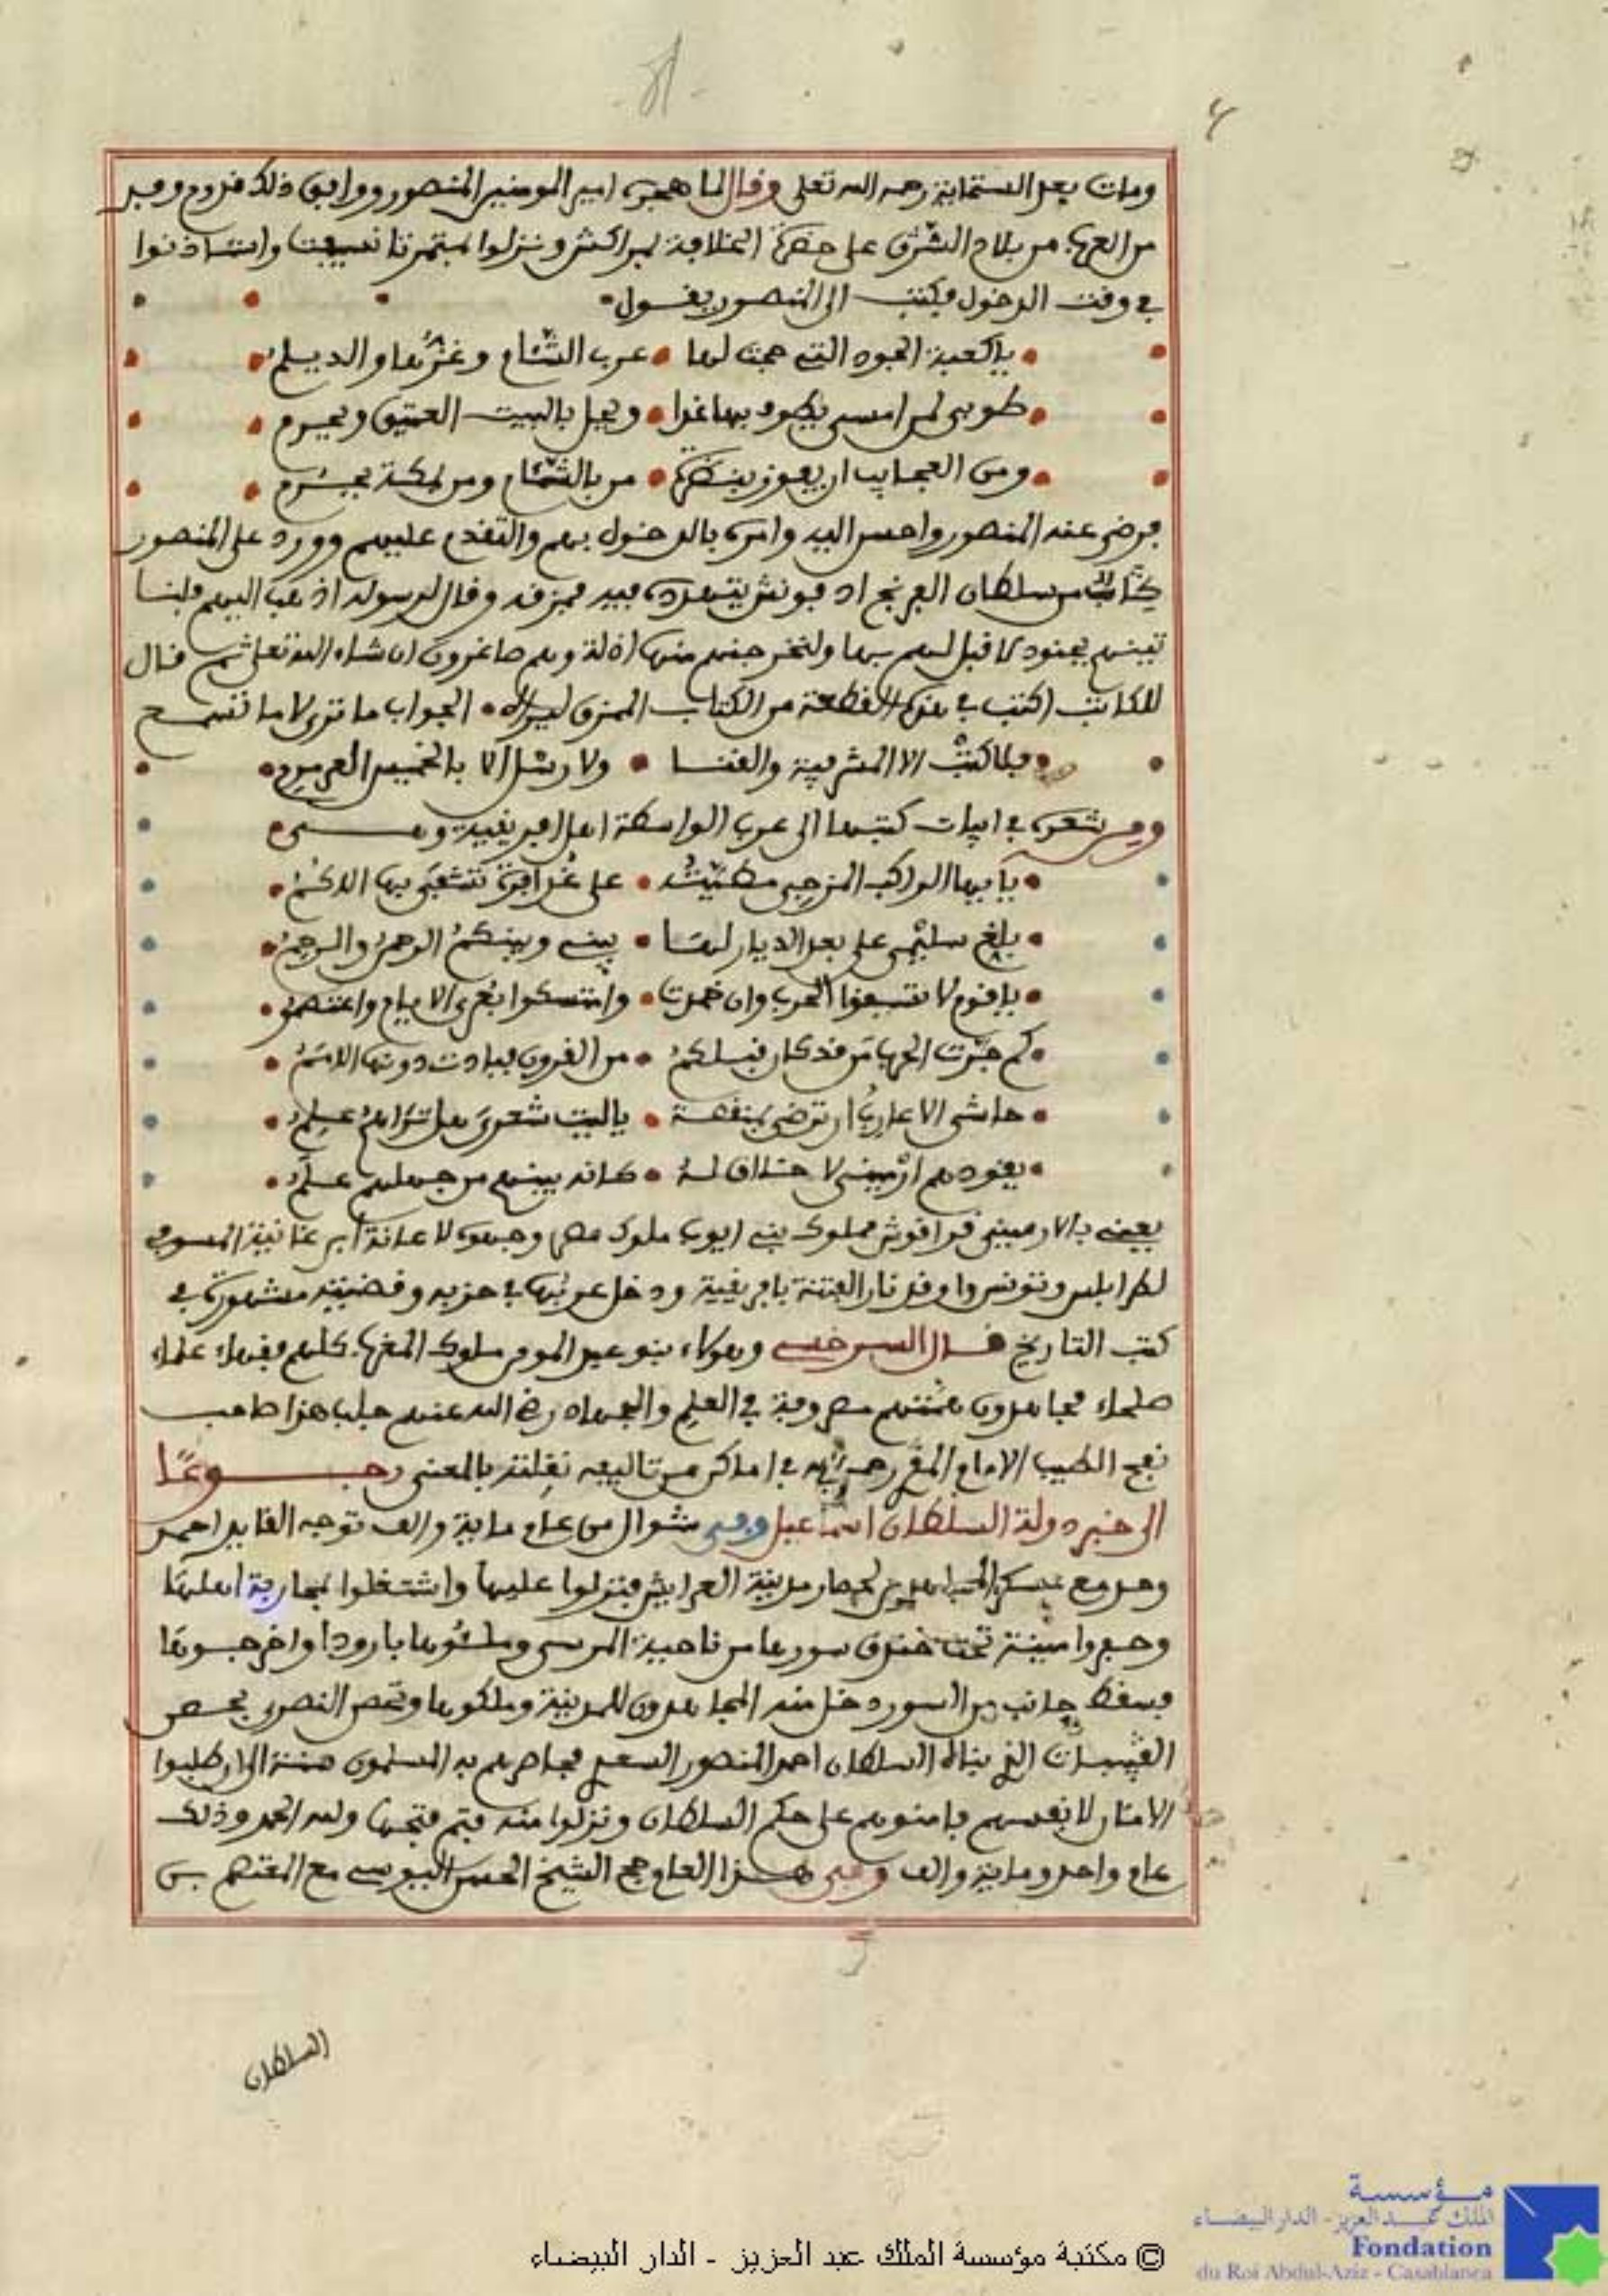 ومات بعد الستماية رحمه الله تعلى وقال لما هجره امير المومنين المنصور ووافق ذلك قدوم وفد
من العرب من بلاد الشرق على حضرة الخلافة لمراكش ونزلوا بتمرتانسيفت واستاذنوا
في وقت الدخول فكتب الى المنصور يقول
ياكعبة الجود التي حجت لها عرب الشام وغزها والديلم
طوبى لمن امسى يطوف بها غدا ويحل بالبيت العتيق ويحرم
ومن العجايب ان يفوز بنظرة من بالشام ومن بمكة يحرم
فرضي عنه المنصور واحسن اليه وامره بالدخول بهم والتقدم عليهم وورد على المنصور
كتاب من سلطان الفرنج ادفونش يتهدده فيه فمزقه وقال لرسوله اذهب اليهم فلنا
تينهم بجنود لا قبل لهم بها ولنخرجنهم منها اذلة وهم صاغرون ان شاء الله تعلى ثم قال
للكاتب اكتب في هذه القطعة من الكتاب الممزق الجواب ما ترى لا ما تسمع
فلا كتب الا المشرفية والقنا ولا رسل الا بالخميس العرمرم
ومن شعره في ابيات كتبها الى عرب الواسطة اهل افريقية وهي
يا ايها الراكب المزجي مطيته على عذافرة تشقى بها الاكم
بلغ سليمى على بعد الديار لها بيني وبينكم الرحمن والرحم
ياقوم لا تشبوا الحرب وان خمدت واستمسكوا بعرى الايمان واعتصموا
كم جربت الحرب من قد كان قبلكم من القرون فبادت دونها الامم
حاشى الاعارب ان ترضى بمنقصة ياليت شعري هل تراهم علموا
يقودهم ارميني لا خلاق له كانه بينهم من جهلهم علم
يعني بالارميني قراقوش مملوك بني ايوب ملوك مصر وجهوه لاعانة ابن غانية المسوفي
لطرابلس وتونس واوقد نار الفتنة بافريقية ودخل عربها في حزبه وقضيته مشهورة في
كتب التاريخ قال السرخسي وهؤلاء بنو عبد المومن ملوك المغرب كلهم فقهاء علماء
صلحاء مجاهدون همتهم مصروفة في العلم والجهاد رضي الله عنهم جلب هذا صاحب
نفح الطيب الامام المقري رحمه الله في اماكن من تاليفه نقلته بالمعنى رجوعا
الى خبر دولة السلطان اسماعيل وفي شوال من عام ماية والف توجه القايد احمد
وحد ومع عسكر المجاهدين لحصار مدينة العرايش فنزلوا عليها واشتغلوا بمحاربة اهلها
وحفروا مينة تحت خندق سورها من ناحية المرسى وملئوها بارودا واخرجوها
فسقط جانب من السور دخل منه المجاهدون للمدينة وملكوها وتحصن النصرى بحصن
القبيبات الذي بناه السلطان احمد المنصور السعدي فحاصرهم به المسلمون سنة الى ان طلبوا
الامان لانفسهم فامنوهم على حكم السلطان ونزلوا منه فتم فتحها ولله الحمد وذلك
عام واحد وماية والف وفي هذا العام حج الشيخ الحسن اليوسي مع المعتصم بن
السلطان
مؤسسة
الملك عبد العزيز - الدار البيضاء
Fondation
du Roi Abdul-Aziz - Casablanca
© مكتبة مؤسسة الملك عبد العزيز - الدار البيضاء